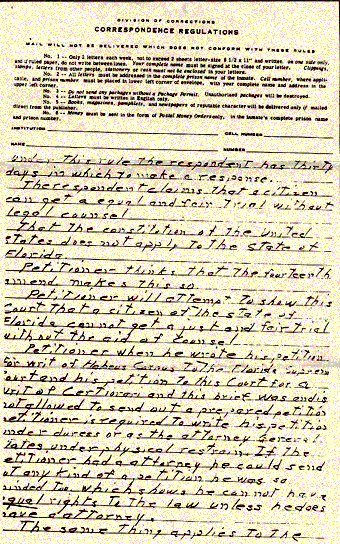 DIVISION OF CORRECTIONS
CORRESPONDENCE REGULATIONS
MAIL WILL NOT BE DELIVERED WHICH DOES NOT CONFORM WITH THESE RULES
No. 1 -- Only 2 letters each week, not to exceed 2 sheets letter-size 8 1/2 x 11" and written on one side only,
and if ruled paper, do not write between lines. Your complete name must be signed at the close of your letter. Clippings,
stamps, letters from other people, stationery or cash must not be enclosed in your letters.
No. 2 -- All letters must be addressed in the complete prison name of the inmate. Cell number, where applicable,
and prison number must be placed in lower left corner of envelope, with your complete name and address in the
upper left corner.
No. 3 -- Do not send any packages without a Package Permit. Unauthorized packages will be destroyed.
No. 4 -- Letters must be written in English only.
No. 5 -- Books, magazines, pamphlets, and newspapers of reputable character will be delivered only if mailed
direct from the publisher.
No. 6 -- Money must be sent in the form of Postal Money Orders only, in the inmate's complete prison name
and prison number.
INSTITUTION CELL NUMBER
NAME NUMBER
under this rule the respondent has thirty
days in which to make a response.
The respondent claims that a citizen
can get a equal and fair trial without
legal counsel
That the constitution of the united
states does not apply to the state of
Florida.
Petitioner thinks that the fourteenth
amend. makes this so.
Petitioner will attempt to show this
Court that a citizen of the state of
Florida cannot get a just and fair trial
without the aid of counsel.
Petitioner when he wrote his petition
for writ of Habeus Corpus to the Florida Suprem
Court and his petition to this Court for a
writ of Certiorari and this brief was and is
not allowed to send out a prepared petition
petitioner is required to write his petition
under durees or as the attorney General
states under physical restrain. If the
petitioner had a attorney he could send
out any kind of a petition he was so
minded too, which shows he cannot have
equal rights to the law unless he does
have a attorney.
The same thing applies to the